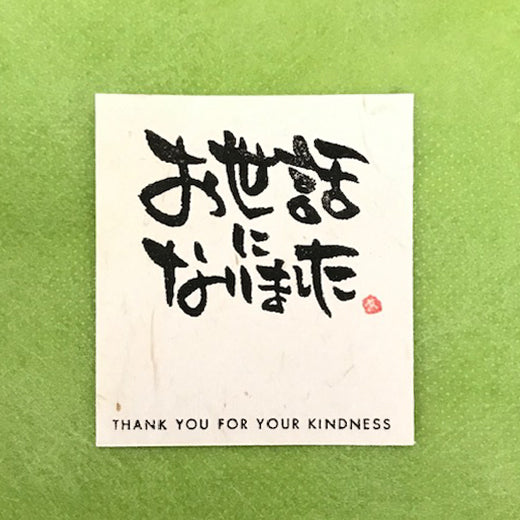 お世話
に
なりました
THANK YOU FOR YOUR KINDNESS